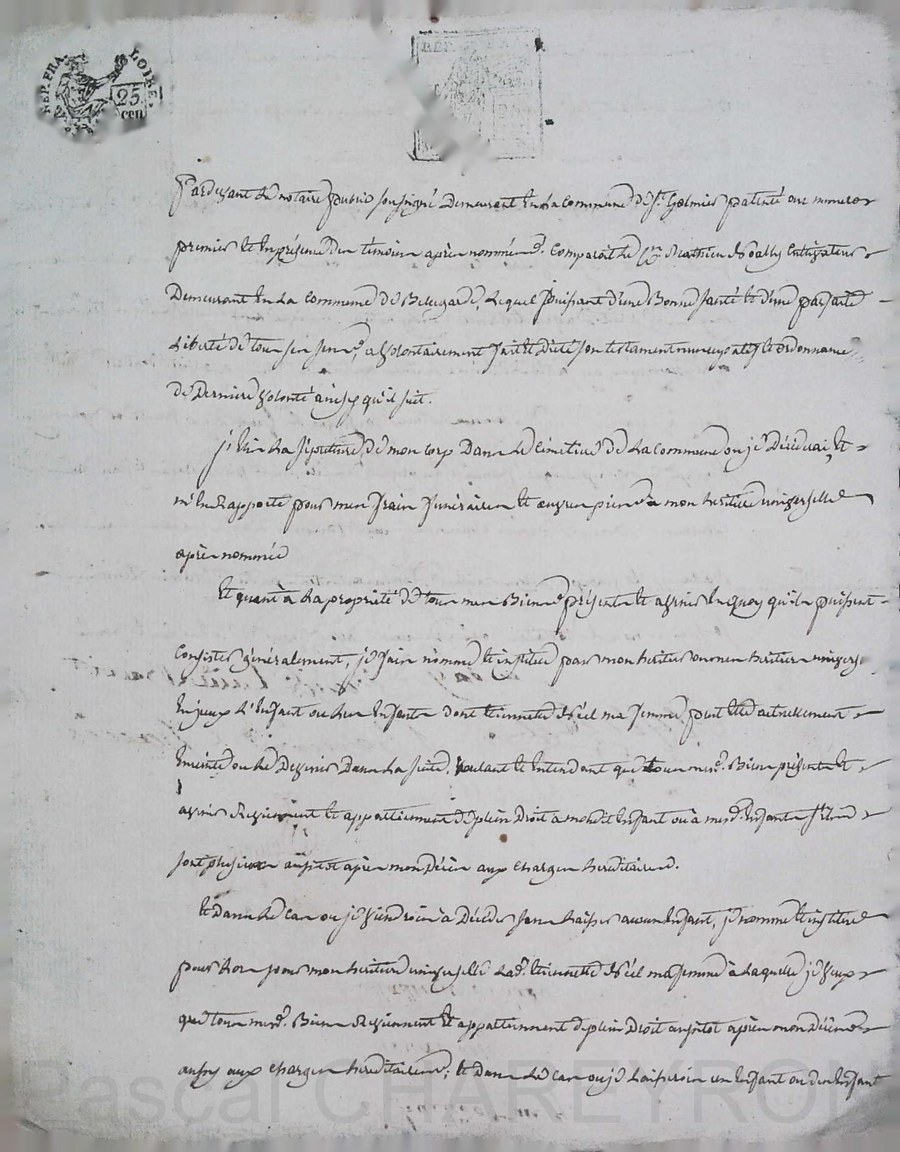 REP. FRA. LOIRE.
25
cen
REP.
Pardevant le notaire public soussigné demeurant en la commune de St. Galmier patenté au numero
premier et en présence des témoins après nommés. Comparait le Cn. Mathieu cultivateur
demeurant en la commune de Belegarde, lequel jouissant d'une bonne santé et d'une parfaite
liberté de tous ses sens, a volontairement fait et dicté son testament nuncupatif et ordonnance
de derniere volonté ainsy qu'il suit.
j'élis la sépulture de mon corp dans le cimetiere de la commune ou je décéderai, et
m'en rapporte pour mes frais funéraires et œuvres pies à mon heritiere universelle
après nommée
Et quant à la propriété de tous mes biens présents et avenir en quoy qu'ils puissent
consister généralement, je fais nomme et institue pour mon heritier ou mes heritiers univers
en jeux l'enfant ou les enfants dont etiennette ma femme peut etre actuellement
enceinte ou le devenir dans la suite, voulant et entendant que tous mesd. biens présents et
avenir reviennent et appartiennent de plein droit a mondit enfant ou à mesd. enfants s'ils
sont plusieurs aussitot après mon décès aux charges hereditaires.
et dans le cas ou je viendrois à décéder sans laisser aucun enfant, je nomme et institue
pour lors pour mon heritiere universelle lad. etiennette ma femme à laquelle je veux
que tous mesd. biens reviennent et appartiennent de plein droit aussitot après mon décès
aussy aux charges hereditaires; et dans le cas ou je laisserois un enfant ou des enfants
Pascal CHAREYRON